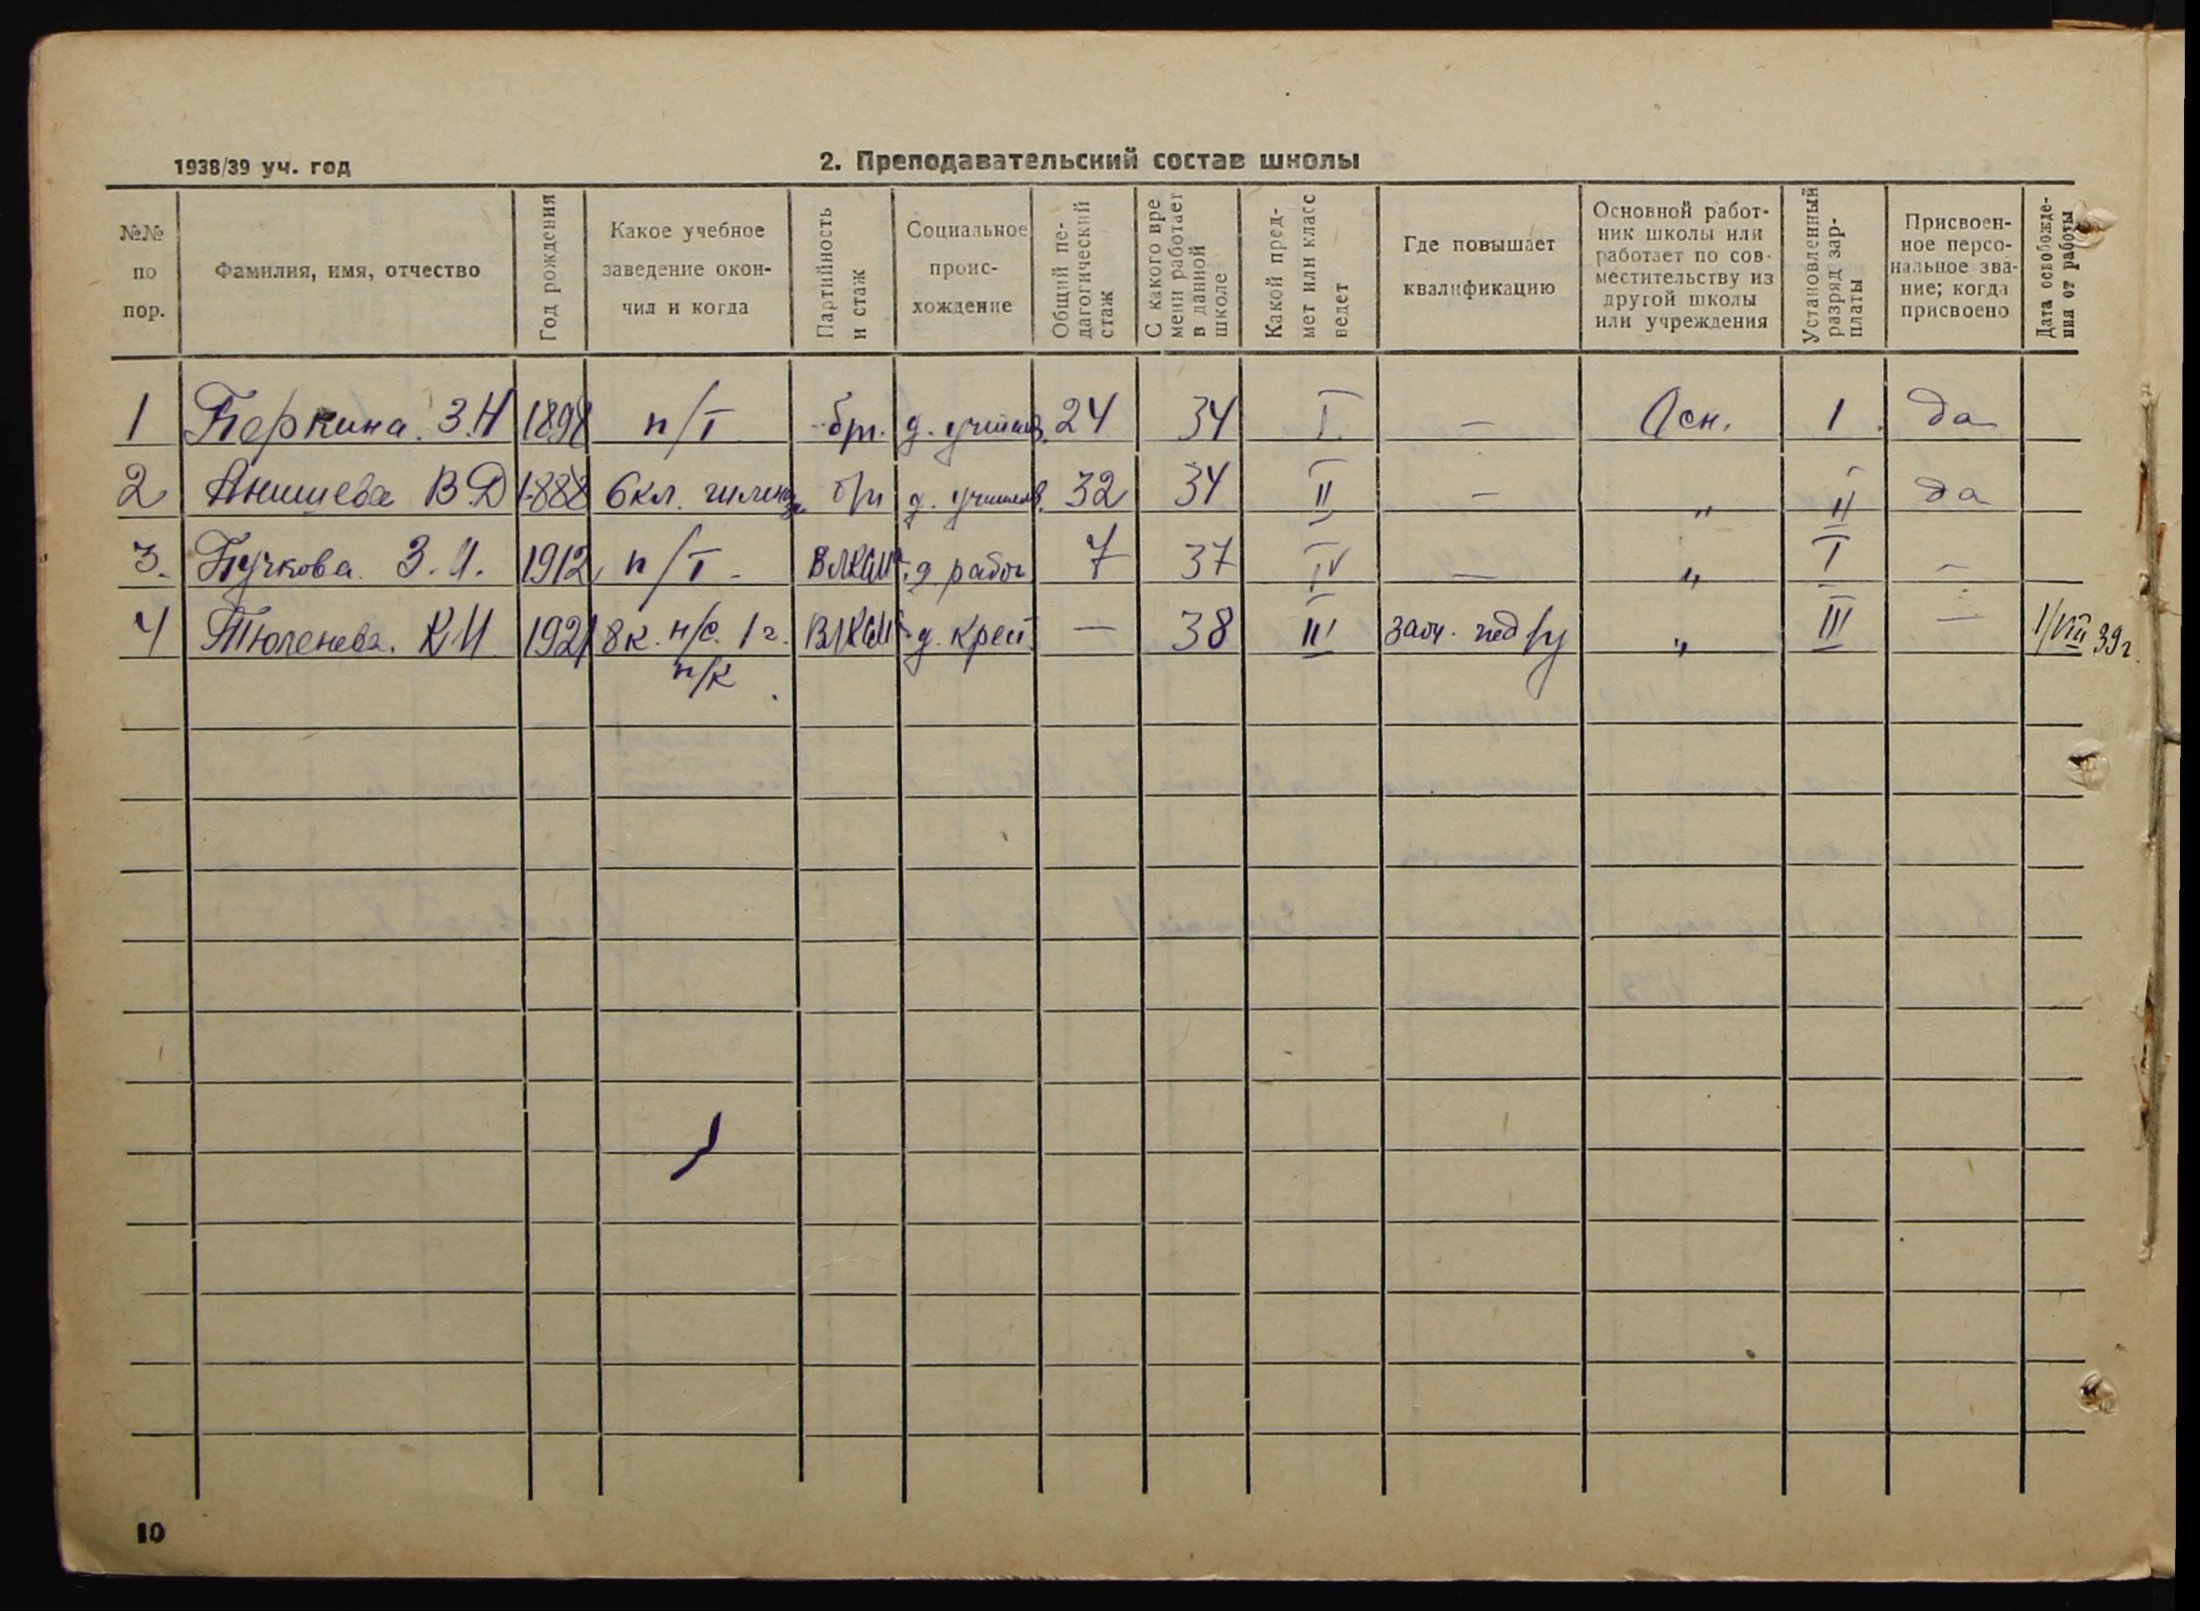 1938/39 уч. год
2. Преподавательский состав школы
№№ по пор.
Фамилия, имя, отчество
Год рождения
Какое учебное заведение окон-
чил и когда
Партийность и стаж
Социальное проис-
хождение
Общий пе-
дагогический стаж
С какого вре
мени работает в данной школе
Какой пред-
мет или класс ведет
Где повышает квалификацию
Основной работ-
ник школы или работает по сов-
местительству из другой школы или учреждения
Установленный разряд зар-
платы
Присвоен-
ное персо-
нальное зва-
ние; когда присвоено
Дата освобожде-
ния от работы
1 Перкина З.Н 1898 п/т бп. д. 24 34 I — Осн. 1 да
2 Анишева В.Д 1888 6кл. бп д. 32 34 II — " II да
3. Пучкова З.И. 1912 п/т - ВЛКСМ д рабоч 7 37 IV — " I —
4 Тюленева. К.И 1921 8к. н/с. 1 г. ВЛКСМ д. крест — 38 III заоч. пед/у " III — 1/VIII 39г
п/к
10